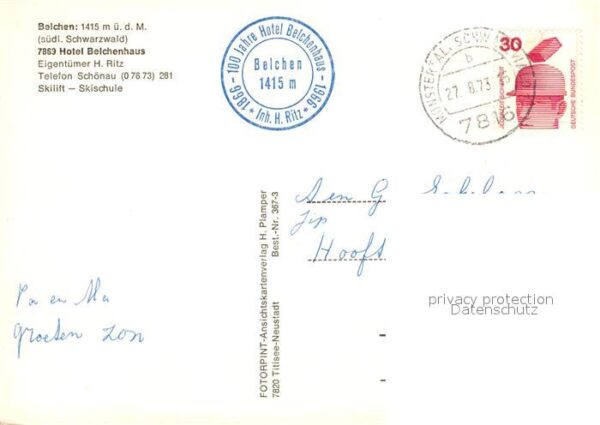 Belchen: 1415 m ü. d. M.
(südl. Schwarzwald)
7883 Hotel Belchenhaus
Eigentümer H. Ritz
Telefon Schönau (0 76 73) 281
Skilift – Skischule
1866 - 100 Jahre Hotel Belchenhaus - 1966
Belchen
1415 m
* Inh. H. Ritz *
MÜNSTERTAL, SCHWARZWALD
b
27. 8. 73
7816
30
DEUTSCHE BUNDESPOST
FOTORPINT-Ansichtskartenverlag H. Plamper
7820 Titisee-Neustadt
Best.-Nr. 367-3
Aen G
Hooft
Pa en Ma
groeten
privacy protection
Datenschutz